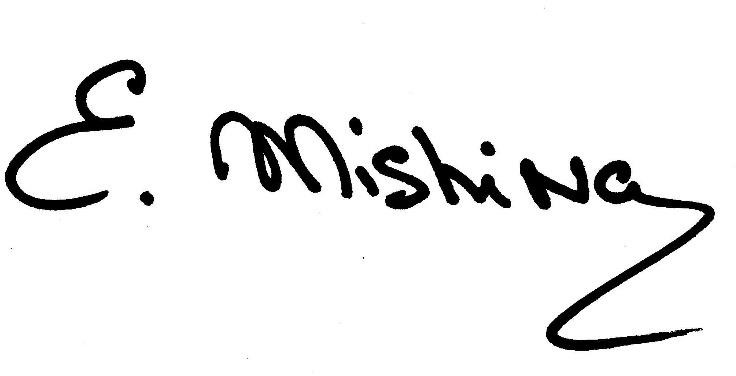 E. Mishina